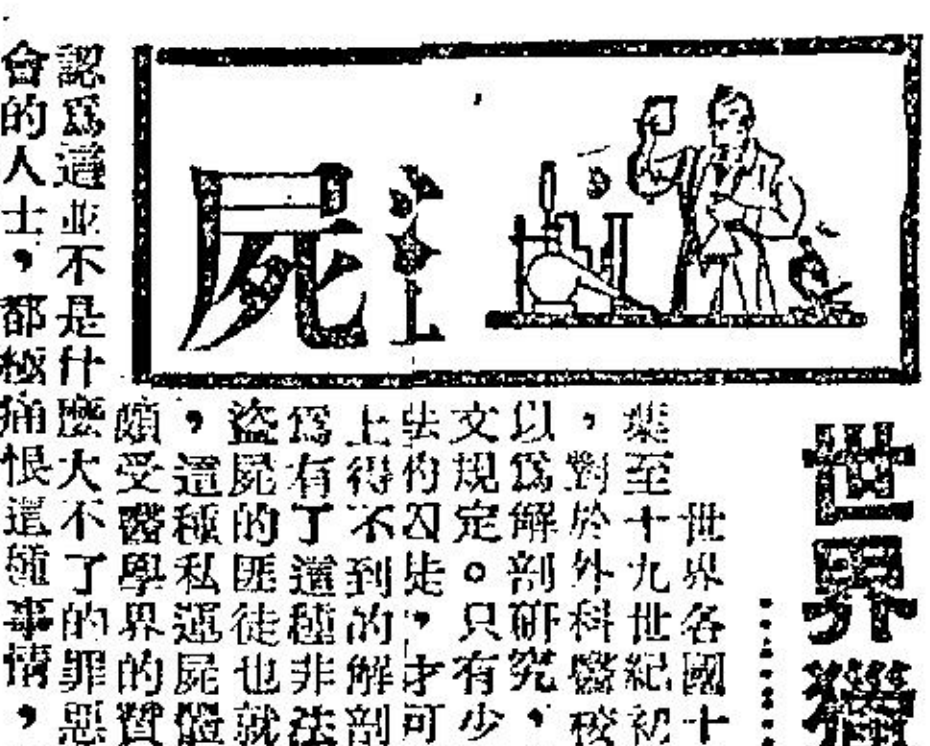 世界獵
屍
世界各國十
葉至十九世紀初
，對於外科醫校
以爲解剖研究，
文規定。只有少
法的囚徒，才可
上得不到的解剖
爲有了這種非法
盜屍的匪徒也就
，這種私運屍體
頗受醫學界的贊
認爲這並不是什麼大不了的罪惡
會的人士，都極痛恨這種事情，